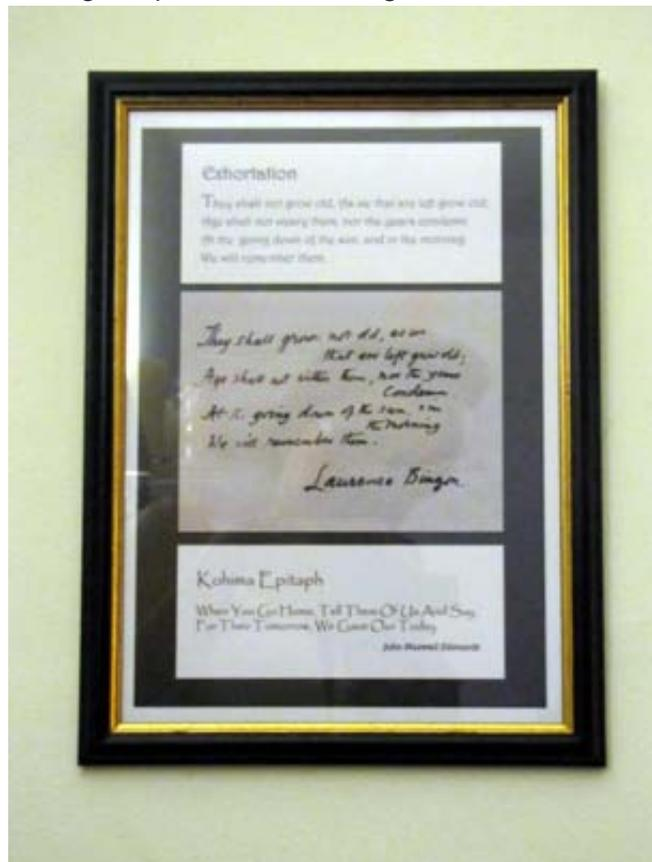 Exhortation
They shall not grow old, As we that are left grow old,
Age shall not weary them, nor the years condemn
At the going down of the sun, and in the morning
We will remember them.
They shall grow not old, as we
that are left grow old;
Age shall not wither them, nor the years
Condemn
At the going down of the sun, in
the Morning
We will remember them.
Laurence Binyon
Kohima Epitaph
When You Go Home, Tell Them Of Us And Say,
For Their Tomorrow, We Gave Our Today
John Maxwell Edmonds